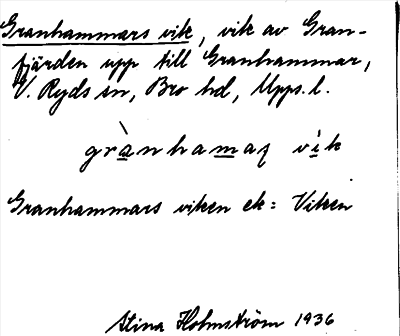 Granhammars vik, vik av Gran-
fjärden upp till Granhammar,
V. Ryds sn, Bro hd, Upps. l.
grànhamaʂ vìk
Granhammars viken ek = Viken
Stina Holmström 1936